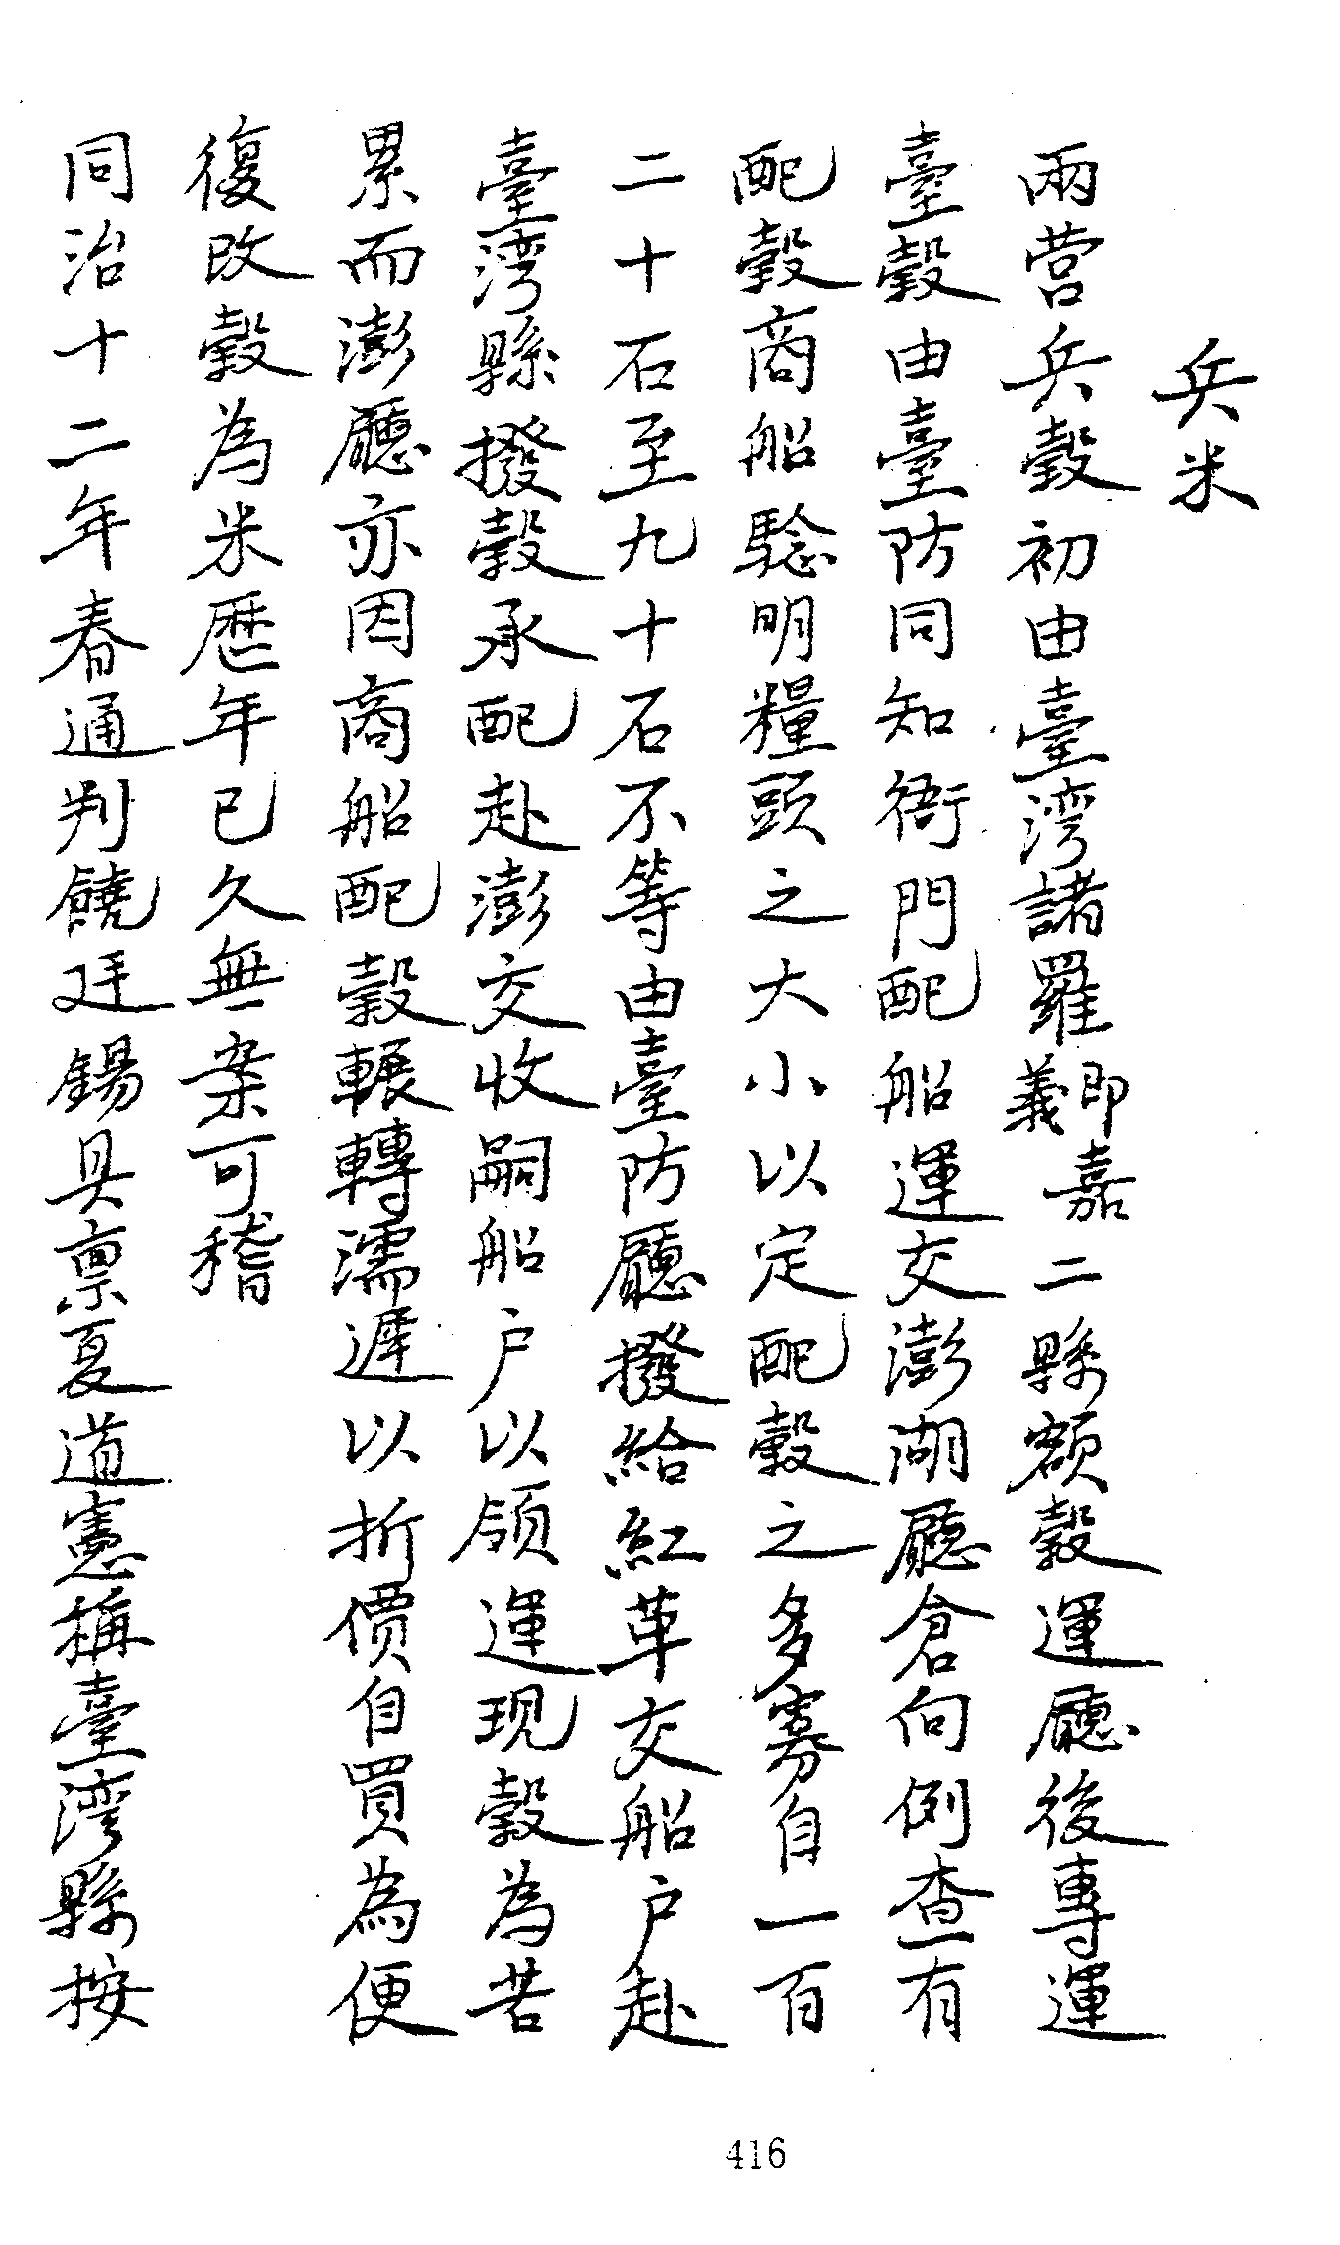 兵米
兩营兵穀初由臺湾諸羅即嘉義二縣額穀運廳後專運
臺穀由臺防同知衙門配船運交澎湖廳倉向例查有
配穀商船騐明糧頭之大小以定配穀之多寡自一百
二十石至九十石不等由臺防廳撥給紅革交船户赴
臺湾縣撥穀承配赴澎交收嗣船户以領運现穀為苦
累而澎廳亦因商船配穀輾轉濡遲以折價自買為便
復改穀為米歴年已久無案可稽
同治十二年春通判饒廷錫具禀夏道憲稱臺湾縣按
416